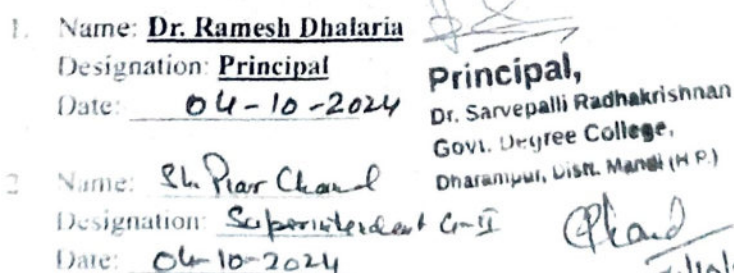 1. Name: Dr. Ramesh Dhalaria
Designation: Principal
Date: 04-10-2024
Principal,
Dr. Sarvepalli Radhakrishnan
Govt. Degree College,
Dharampur, Distt. Mandi (H.P.)
2. Name: Sh. Piar Chand
Designation: Superintendent G-II
Date: 04-10-2024